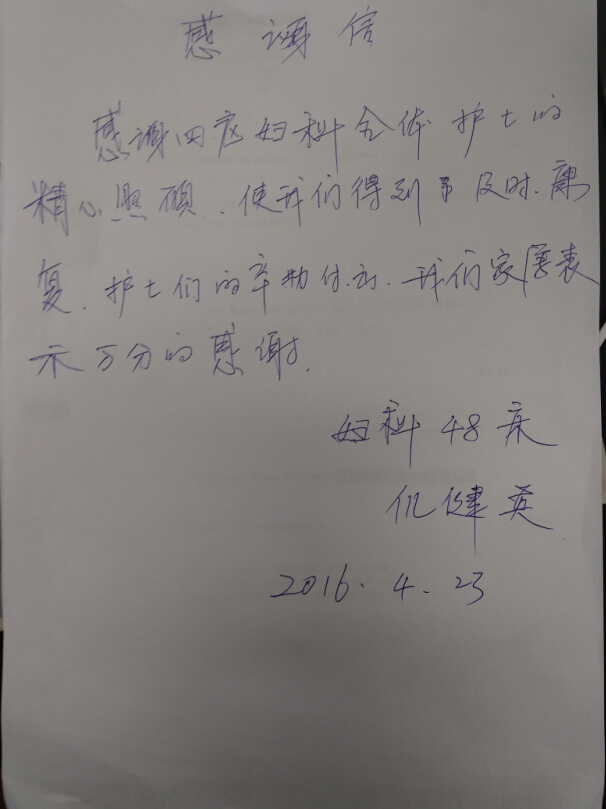 感谢信
感谢四区妇科全体护士的
精心照顾，使我们得到了及时康
复，护士们的辛勤付出，我们家属表
示万分的感谢！
妇科48床
仉健英
2016.4.23